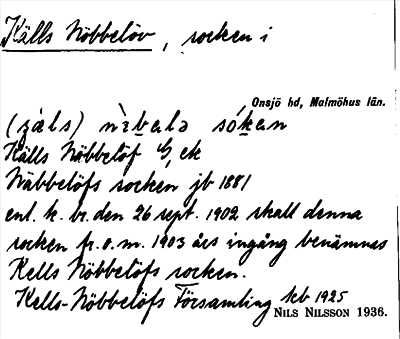 Källs Nöbbelöv, socken i
Onsjö hd, Malmöhus län.
(ṣäls) nɛ̀balə sókən
Källs Nöbbelöf G, ek
Näbbelöfs socken jb 1881
enl. k. br. den 26 sept. 1902 skall denna
socken fr. o. m. 1903 års ingång benämnas
Kells Nöbbelöfs socken.
Kells-Nöbbelöfs Församling tkb 1925
NILS NILSSON 1936.